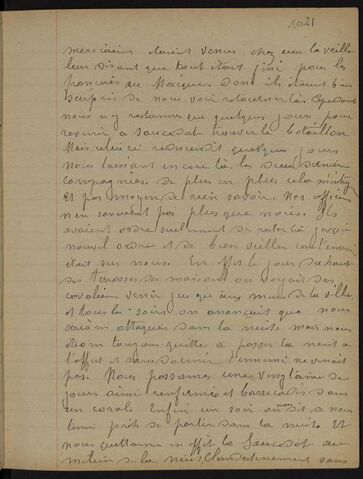 1021
mexicains étaient venus chez eux la veille
leur disant que tout était fini pour les
français au Mexique. Donc ils étaient bien
surpris de nous voir retourner là Cependant
nous n'y restames que quelques jours pour
revenir a trouver le bataillon
Mais celui ci redescendit quelques jours
nous laissant encore là les deux dernières
compagnies. De plus en plus cela
et pas moyen de rien savoir. Nos officiers
n'en savaient pas plus que nous. Ils
avaient ordre seulement de rester là jusqu'à
nouvel ordre et de bien veiller car l'ennemi
était sur nous. En effet le jour du haut
des terrasses des maisons on voyait des
cavaliers venir jusque aux murs de la ville
et tous les soirs on anonçait que nous
serions attaqués dans la nuit. mais nous
étions toujours quitte a passer la nuit a
l'affut et sans dormir l'ennemi ne venait
pas. Nous passames une vingtaine de
jours ainsi renfermés et barecadés dans
un coral. Enfin un soir on dit a nous
tenir prêt de partir dans la nuit. Et
nous quittame en effet la au
milieu de la nuit clandestinement sans